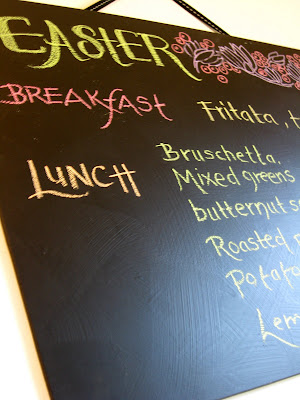 EASTER
BREAKFAST Fritata,
LUNCH Bruschetta.
Mixed greens
butternut
Roasted
Potato